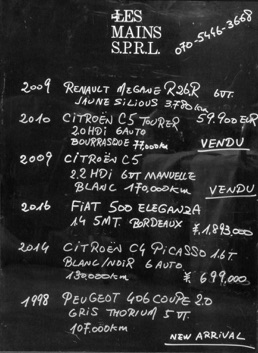 LES
MAINS
S.P.R.L.
070-5446-3668
2009 RENAULT MEGANE R26R 6VT.
JAUNE SILIOUS 3.780km
2010 CITROËN C5 TOURER 59.900 EUR
2.0HDI 6AUTO
BOURRASQUE 77.000km VENDU
2009 CITROËN C5
2.2 HDI 6VT MANUELLE
BLANC 170,000km VENDU
2016 FIAT 500 ELEGANZA
1.4 5MT. BORDEAUX ¥.1,893,000
2014 CITROËN C4 PICASSO 1.6T
BLANC/NOIR 6 AUTO
130,000km ¥. 699,000
1998 PEUGEOT 406 COUPE 2.0
GRIS THORIUM 5 VT.
107.000km
NEW ARRIVAL